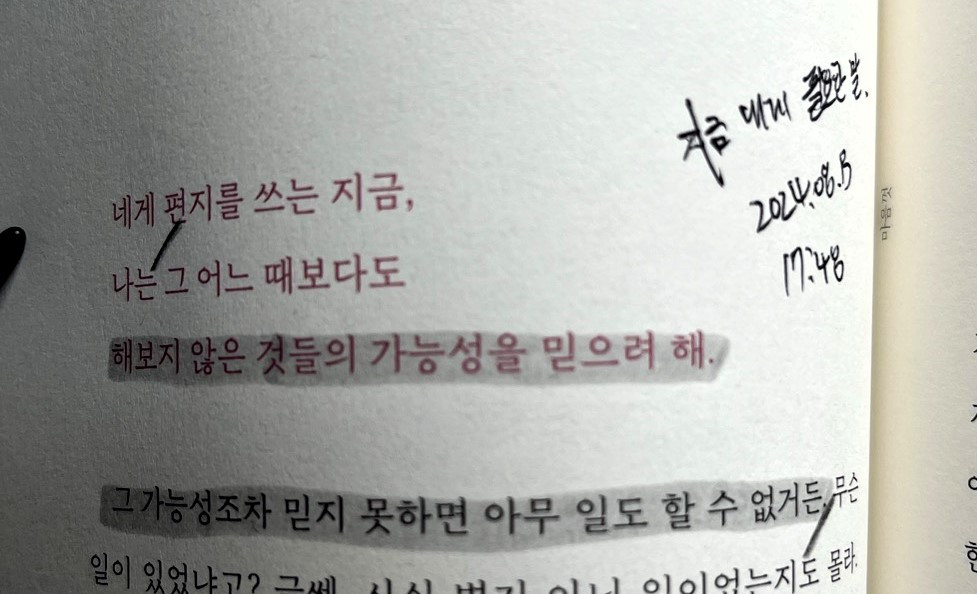 지금 내게 필요한 말.
2024.08.5
17:48
네게 편지를 쓰는 지금,
나는 그 어느 때보다도
해보지 않은 것들의 가능성을 믿으려 해.
그 가능성조차 믿지 못하면 아무 일도 할 수 없거든. 무슨
일이 있었냐고? 글쎄, 사실 별거 아닌 일이었는지도 몰라.
마음껏